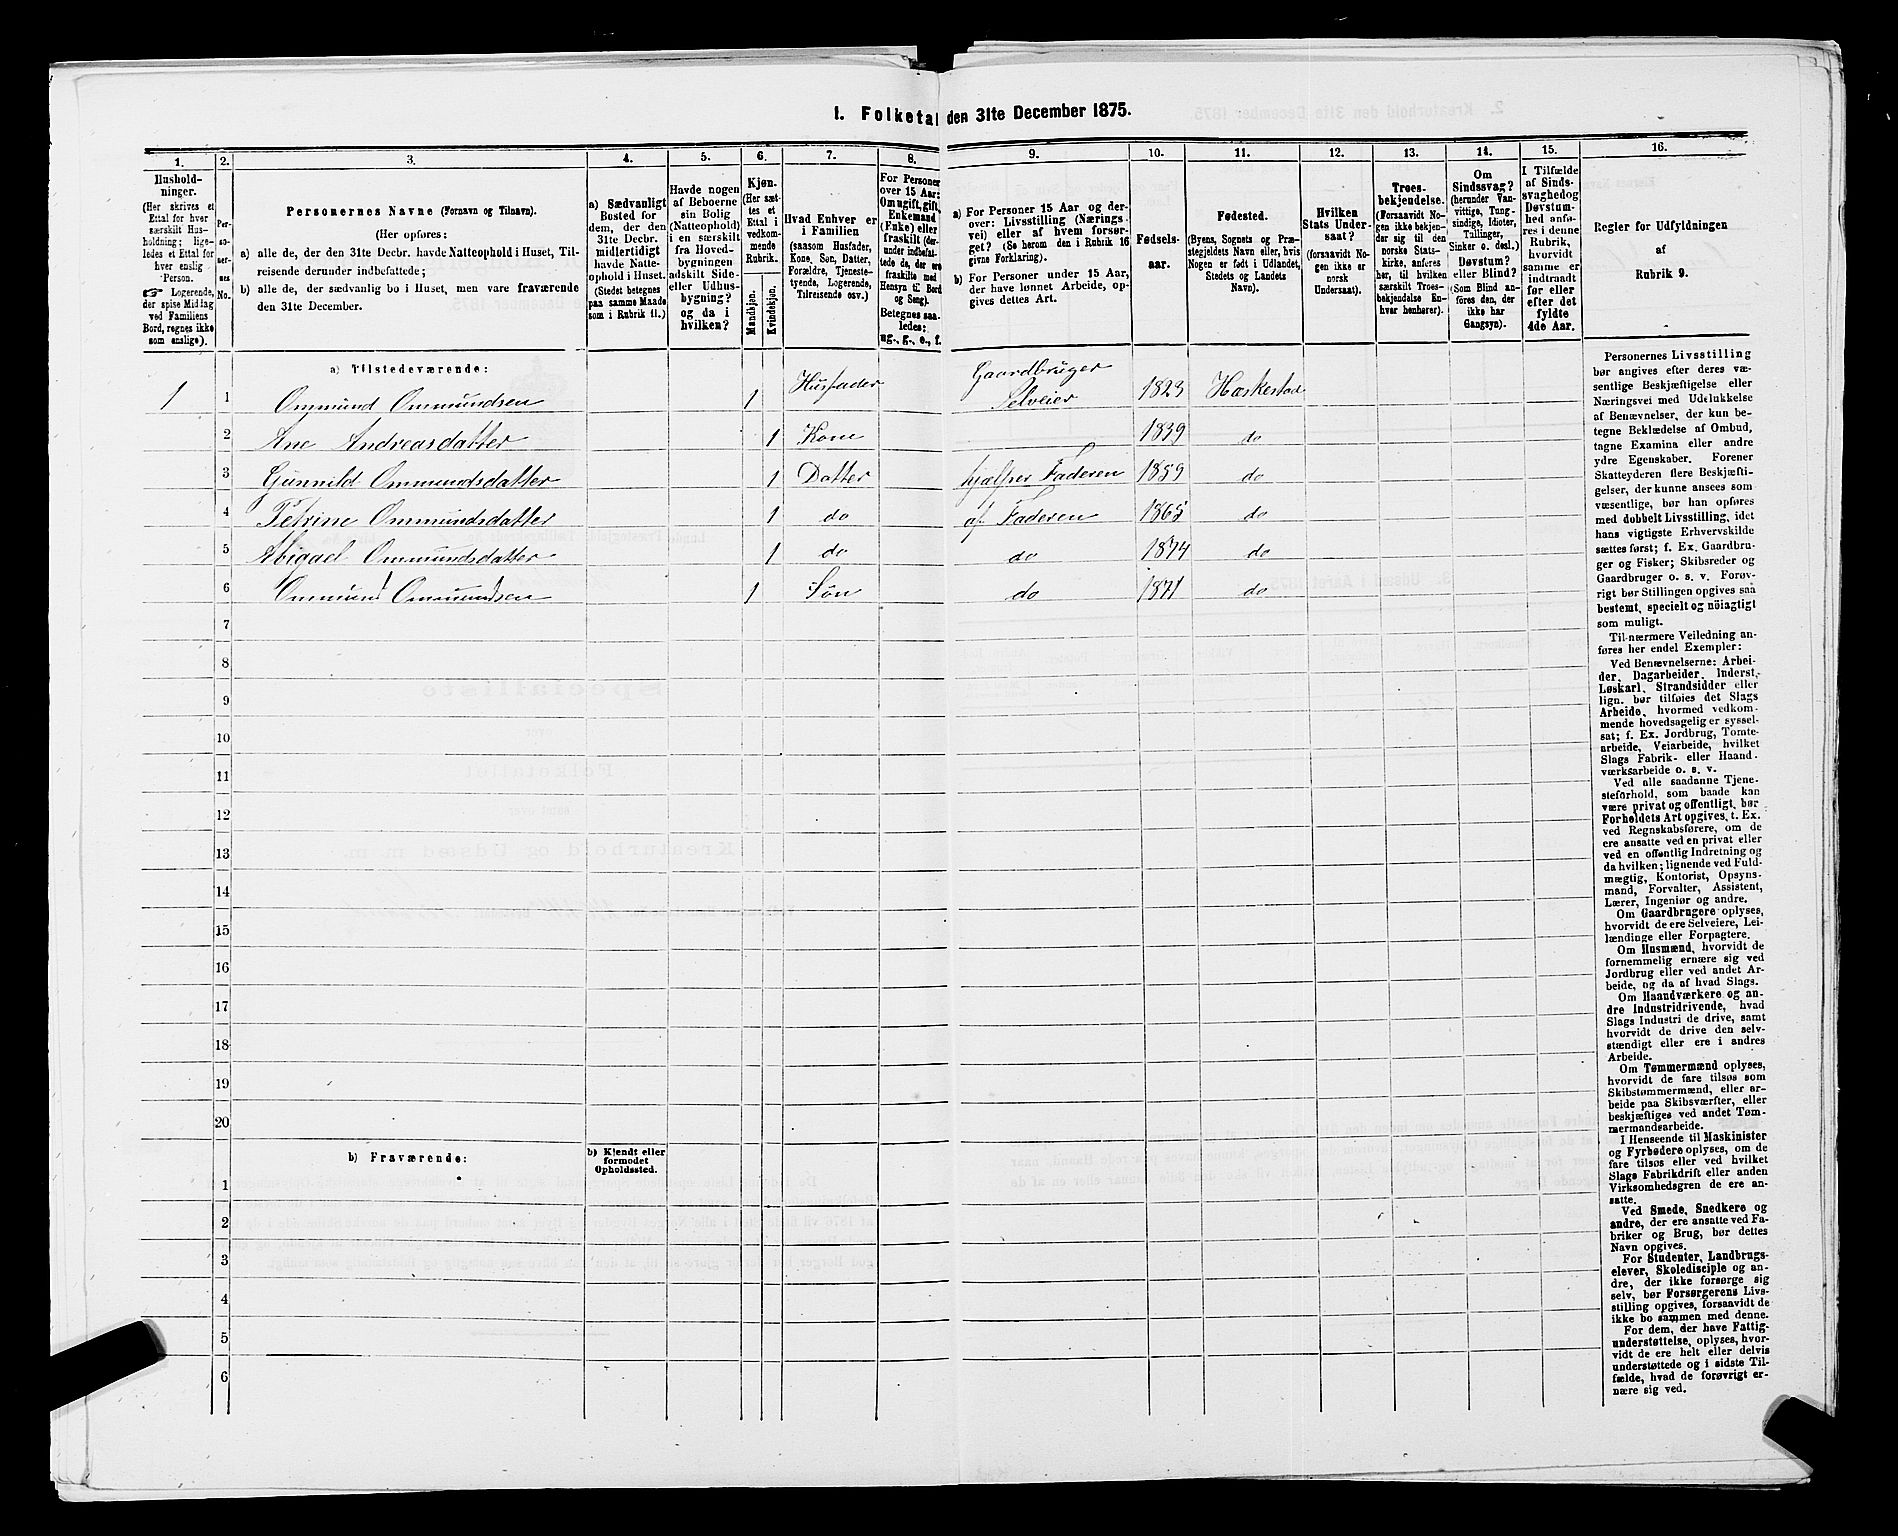 1. Folketal den 31te December 1875.
1. 2. 3. 4. 5. 6. 7. 8. 9. 10. 11. 12. 13. 14. 15. 16.
Hushold-
ninger.
(Her skrives et
Ettal for hver
særskilt Hus-
holdning; lige-
ledes et Ettal for
hver enslig
Person.
☞ Logerende,
der spise Middag
ved Familiens
Bord, regnes ikke
som enslige).
Per-
so-
ner-
nes
No.
Personernes Navne (Fornavn og Tilnavn).
(Her opføres:
a) alle de, der den 31te Decbr. havde Natteophold i Huset, Til-
reisende derunder indbefattede;
b) alle de, der sædvanlig bo i Huset, men vare fraværende
den 31te December.
a) Sædvanligt
Bosted for
dem, der den
31te Decbr.
midlertidigt
havde Natte-
ophold i Huset.
(Stedet betegnes
paa samme Maade
som i Rubrik 11.)
Havde nogen
af Beboerne
sin Bolig
(Natteophold)
i en særskilt
fra Hoved-
bygningen
adskilt Side-
eller Udhus-
bygning?
og da i
hvilken?
Kjøn.
(Her sæt-
tes et
Ettal i
vedkom-
mende
Rubrik.
Mandkjøn.
Kvindekjøn.
Hvad Enhver er
i Familien
(saasom Husfader,
Kone, Søn, Datter,
Forældre, Tjeneste-
tyende, Logerende,
Tilreisende osv.)
For Personer
over 15 Aar:
Om ugift, gift,
Enkemand
(Enke) eller
fraskilt (der-
under indbefat-
tede de, der ere
fraskilte med
Hensyn til Bord
og Seng).
Betegnes saa-
ledes:
ug., g., e., f.
a) For Personer 15 Aar og der-
over: Livsstilling (Nærings-
vei) eller af hvem forsør-
get? (Se herom den i Rubrik 16
givne Forklaring).
b) For Personer under 15 Aar,
der have lønnet Arbeide, op-
gives dettes Art.
Fødsels-
aar.
Fødested.
(Byens, Sognets og Præ-
stegjeldets Navn eller, hvis
Nogen er født i Udlandet,
Stedets og Landets
Navn).
Hvilken
Stats Under-
saat?
(forsaavidt No-
gen ikke er
norsk
Undersaat).
Troes-
bekjendelse.
(Forsaavidt No-
gen ikke bekjen-
der sig til den
norske Stats-
kirke, anføres
her, til hvilken
særskilt Troes-
bekjendelse En-
hver henhører).
Om
Sindssvag?
(herunder Van-
vittige, Tung-
sindige, Idioter,
Tullinger,
Sinker o. desl.)
Døvstum?
eller Blind?
(Som Blind an-
føres den, der
ikke har
Gangsyn).
I Tilfælde
af Sinds-
svaghed og
Døvstum-
hed anfø-
res i denne
Rubrik,
hvorvidt
samme er
indtraadt
før eller
efter det
fyldte
4de Aar.
Regler for Udfyldningen
af
Rubrik 9.
a) Tilstedeværende:
1 1 Ommund Ommundsen 1 Husfader Gaardbruger Selveier 1823 Hæskestad
2 Ane Andreasdatter 1 Kone 1839 do
3 Gunnild Ommundsdatter 1 Datter hjælper Faderen 1859 do
4 Petrine Ommundsdatter 1 do af Faderen 1865 do
5 Abigael Ommundsdatter 1 do do 1874 do
6 Ommund Ommundsen 1 Søn do 1871 do
7
8
9
10
11
12
13
14
15
16
17
18
19
20
b) Fraværende:
b) Kjendt eller
formodet
Opholdssted.
1
2
3
4
5
6
Personernes Livsstilling
bør angives efter deres væ-
sentlige Beskjæftigelse eller
Næringsvei med Udelukkelse
af Benævnelser, der kun be-
tegne Beklædelse af Ombud,
tagne Examina eller andre
ydre Egenskaber. Forener
Skatteyderen flere Beskjæfti-
gelser, der kunne ansees som
væsentlige, bør han opføres
med dobbelt Livsstilling, idet
hans vigtigste Erhvervskilde
sættes først; f. Ex. Gaardbru-
ger og Fisker; Skibsreder og
Gaardbruger o. s. v. Forøv-
rigt bør Stillingen opgives saa
bestemt, specielt og nöiagtigt
som muligt.
Til nærmere Veiledning an-
føres her endel Exempler:
Ved Benævnelserne: Arbei-
der, Dagarbeider, Inderst,
Løskarl, Strandsidder eller
lign. bør tilføies det Slags
Arbeide, hvormed vedkom-
mende hovedsagelig er syssel-
sat; f. Ex. Jordbrug, Tomte-
arbeide, Veiarbeide, hvilket
Slags Fabrik- eller Haand-
værksarbeide o. s. v.
Ved alle saadanne Tjene-
steforhold, som baade kan
være privat og offentligt, bør
Forholdets Art opgives, t. Ex.
ved Regnskabsførere, om de
ere ansatte ved en privat eller
ved en offentlig Indretning og
da hvilken; lignende ved Fuld-
mægtig, Kontorist, Opsyns-
mand, Forvalter, Assistent,
Lærer, Ingeniør og andre.
Om Gaardbrugere oplyses,
hvorvidt de ere Selveiere, Lei-
lændinge eller Forpagtere.
Om Husmænd, hvorvidt de
fornemmelig ernære sig ved
Jordbrug eller ved andet Ar-
beide, og da af hvad Slags.
Om Haandværkere og an-
dre Industridrivende, hvad
Slags Industri de drive, samt
hvorvidt de drive den selv-
stændigt eller ere i andres
Arbeide.
Om Tømmermænd oplyses,
hvorvidt de fare tilsøs som
Skibstømmermænd, eller ar-
beide paa Skibsværfter, eller
beskjæftiges ved andet Tøm-
mermandsarbeide.
I Henseende til Maskinister
og Fyrbødere oplyses, om de
fare tilsøs eller ved hvilket
Slags Fabrikdrift eller anden
Virksomhedsgren de ere an-
satte.
Ved Smede, Snedkere og
andre, der ere ansatte ved Fa-
briker og Brug, bør dettes
Navn opgives.
For Studenter, Landbrugs-
elever, Skoledisciple og an-
dre, der ikke forsørge sig
selv, bør Forsørgerens Livs-
stilling opgives, forsaavidt de
ikke bo sammen med denne.
For dem, der have Fattig-
understøttelse, oplyses, hvor-
vidt de ere helt eller delvis
understøttede og i sidste Til-
fælde, hvad de forøvrigt er-
nære sig ved.